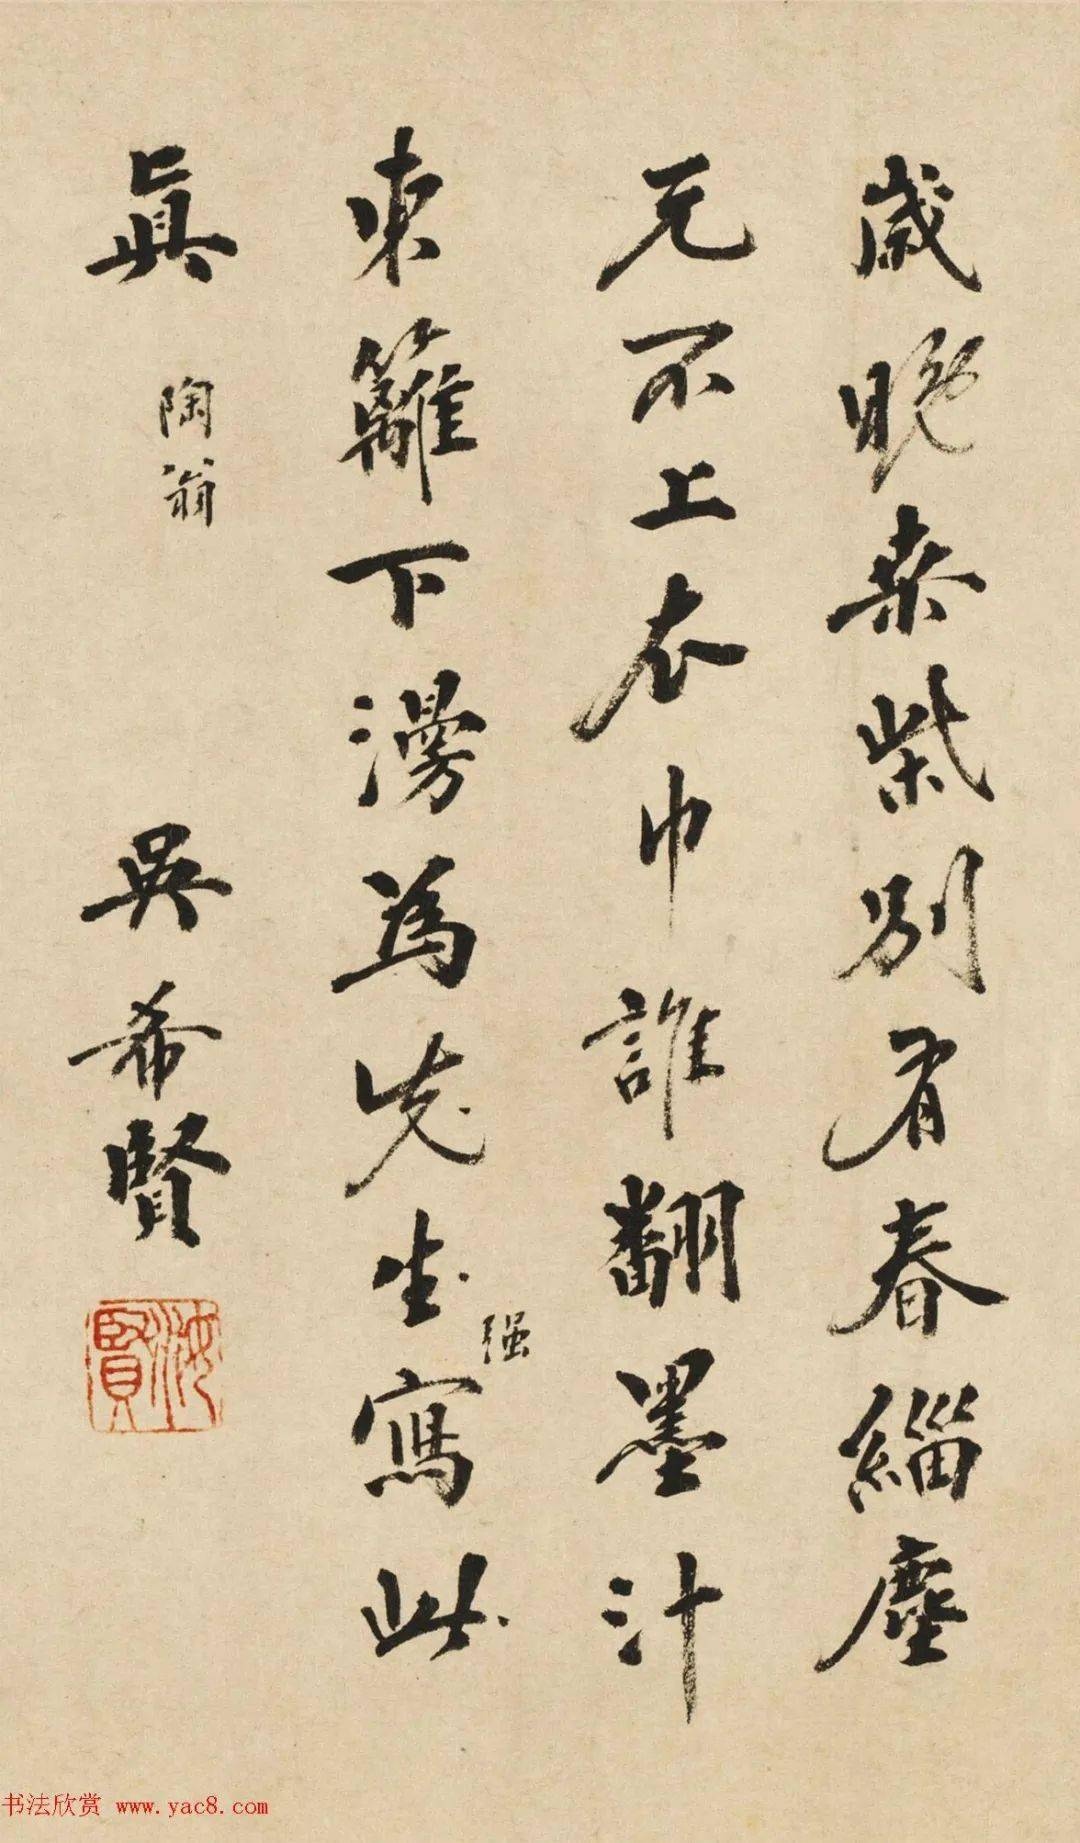 歲晚桒柴別有春緇塵
元不上衣巾誰翻墨汁
東籬下漫為先生强寫此
眞 陶翁 吳希賢
汝賢
书法欣赏 www.yac8.com